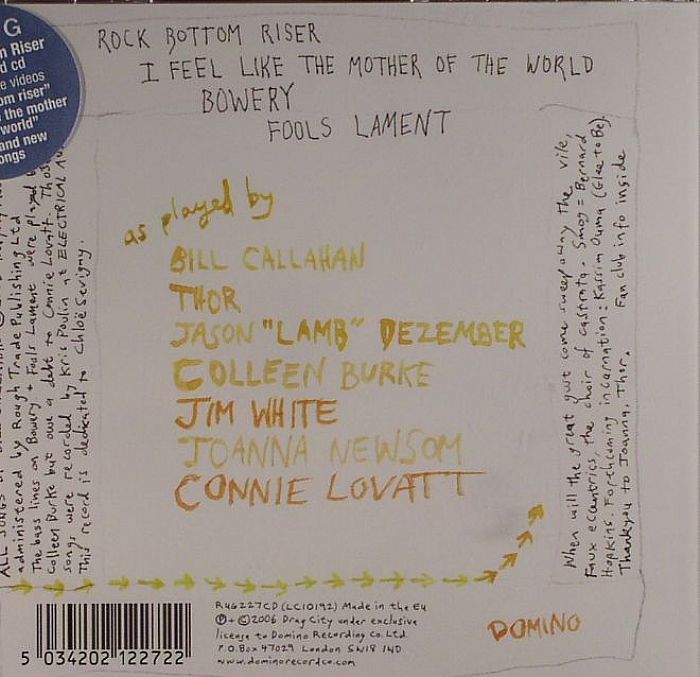 G
n Riser
d cd
e videos
om riser"
the mother
world"
and new
ongs
ROCK BOTTOM RISER
I FEEL LIKE THE MOTHER OF THE WORLD
BOWERY
FOOLS LAMENT
as played by
BILL CALLAHAN
THOR
JASON "LAMB" DEZEMBER
COLLEEN BURKE
JIM WHITE
JOANNA NEWSOM
CONNIE LOVATT
ALL SONGS
administered by Rough Trade Publishing Ltd
The bass lines on Bowery + Fools Lament were played
Colleen Burke but owe a debt to Connie Lovatt. Thos
songs were recorded by Kris Poulin at ELECTRICAL AU
This record is dedicated to Chloë Sevigny.
When will the great gust come sweep away the vile,
Faux eccentrics, the choir of castrata. Smog = Bernard
Hopkins. Forthcoming incarnation: Kassim Ouma (Glee to Be).
Thankyou to Joanna, Thor. Fan club info inside
5 034202 122722
RUG227CD (LC10192) Made in the EU
℗+©2006 Drag City under exclusive
license to Domino Recording Co. Ltd.
P.O. Box 47029 London SW18 1WD
www.dominorecordco.com
DOMINO